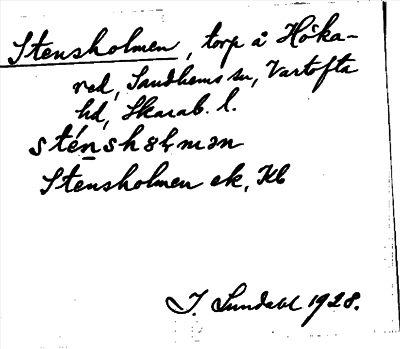 Stensholmen, torp å Höka-
red, Sandhems sn, Vartofta
hd, Skarab. l.
sténshɷlmən
Stensholmen ek, Kb
I. Lundahl 1928.